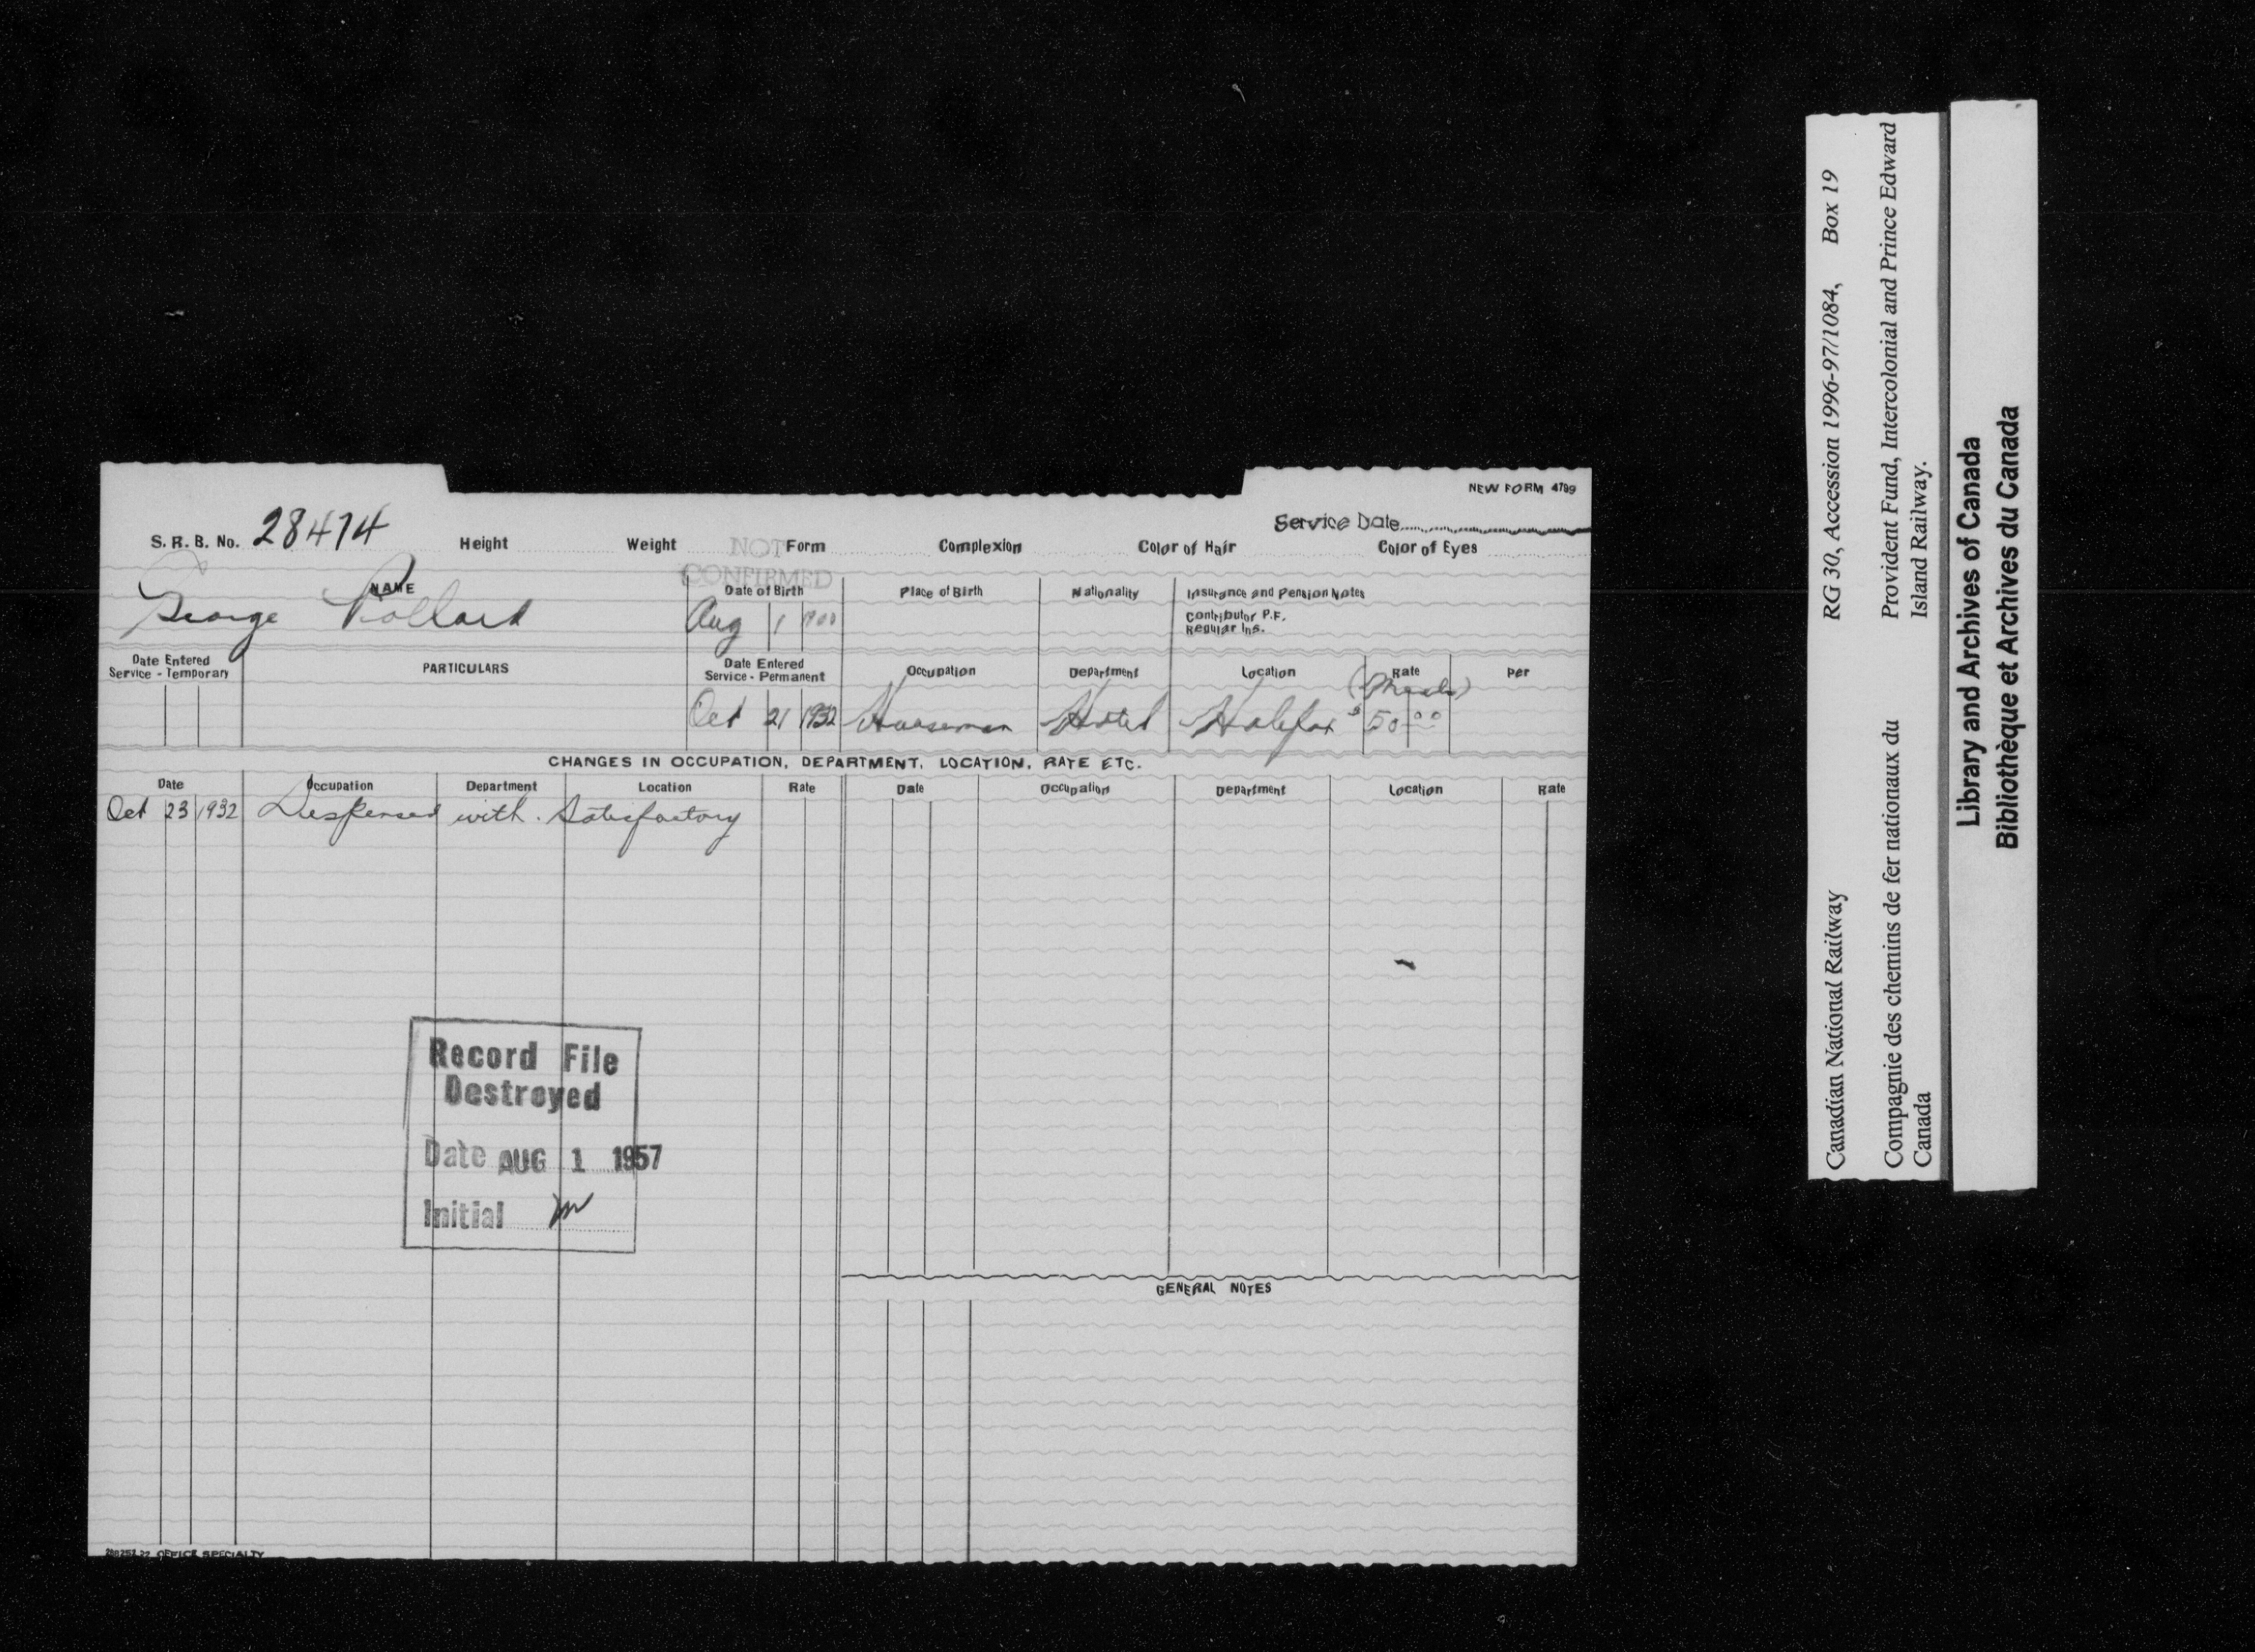 NEW FORM 4799
Service Date
S. R. B. No. 28474 Height Weight Form Complexion Color of Hair Color of Eyes
NOT CONFIRMED
NAME Date of Birth Place of Birth Nationality Insurance and Pension Notes
George Pollard Aug 1 1900 Contributor P.F.
Regular Ins.
Date Entered Service - Temporary PARTICULARS Date Entered Service - Permanent Occupation Department Location Rate Per
(Meals)
Oct 21 1932 Houseman Hotel Halifax $50.00
CHANGES IN OCCUPATION, DEPARTMENT, LOCATION, RATE ETC.
Date Occupation Department Location Rate Date Occupation Department Location Rate
Oct 23 1932 Dispensed with. Satisfactory
Record File
Destroyed
Date AUG 1 1957
Initial
GENERAL NOTES
OFFICE SPECIALTY
Canadian National Railway RG 30, Accession 1996-97/1084, Box 19
Compagnie des chemins de fer nationaux du Canada
Provident Fund, Intercolonial and Prince Edward Island Railway.
Library and Archives of Canada
Bibliothèque et Archives du Canada